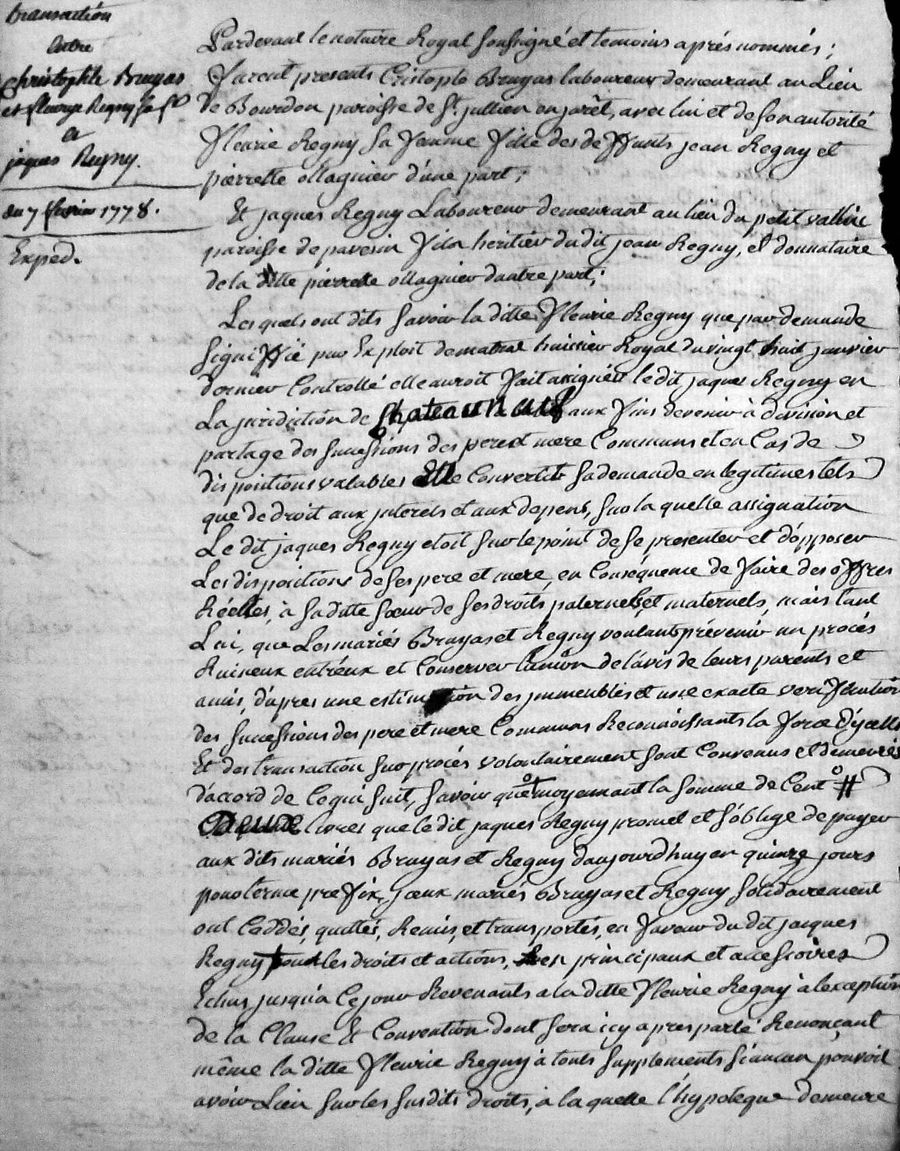 transaction
entre
christophle Bruyas
et fleurye Regny sa f.e
et
jaques Regny.
du 7 fevrier 1778.
Exped.
Pardevant le notaire Royal soussigné et temoins aprés nommés;
furent presents Cristople Bruyas laboureur demeurant au Lieu
de Bourdon paroisse de St. jullien en jarêt, avec lui et de son autorité
fleurie Regny sa femme fille des deffunts jean Regny et
pierrette ollagnier d'une part;
Et jaques Regny Laboureur demeurant au lieu du petit
paroisse de pavesin fils heritier du dit jean Regny, et donnataire
de la ditte pierrette ollagnier dautre part;
Lesquels ont dits savoir la ditte fleurie Regny que par demande
signiffié par Exploit de matral huissier Royal du vingt huit janvier
dernier Controllé elle auroit fait assigner le dit jaques Regny en
La juridiction de Chateauneuf aux fins de venir à division et
partage des successions des pere et mere Communs et en Cas de
dispositions valables Elle Convertit sa demande en legitimes tels
que de droit aux interets et aux depens, sur la quelle assignation
Le dit jaques Regny etoit sur le point de se presenter et d'opposer
Les dispositions de ses pere et mere, en Conséquence de faire des offres
Réelles, à sa ditte sœur de ses droits paternels, et maternels, mais tant
Lui, que Les mariés Bruyas et Regny voulants prévenir un procés
Ruineux entréux et Conserver l'union de l'avis de leurs parents et
amis, d'apres une estimation des jmmeubles et une exacte veriffication
des successions des pere et mere Communs Reconnoissants la force d'ycelle
Et des transaction sur procés volontairement sont Convenus et demeurés
d'accord de Ce qui suit, savoir que moyennant la somme de Cent
livres que le dit jaques Regny promet et s'oblige de payer
aux dits mariés Bruyas et Regny daujourdhuy en quinze jours
pour terme prefix, jceux mariés Bruyas et Regny solidairement
ont Caddés, quittés, Remis, et transportés, en faveur du dit jaques
Regny tous les droits et actions, en principaux et accessoires
Echus jusqu'a Ce jour Revenants a la ditte fleurie Regny à lexception
de la Clause Et Convention dont sera icy apres parlé Renonçant
même la ditte fleurie Regny à touts supplements si aucun pouvoit
avoir Lieu sur les susdits droits, à la quelle l'hypoteque demeure